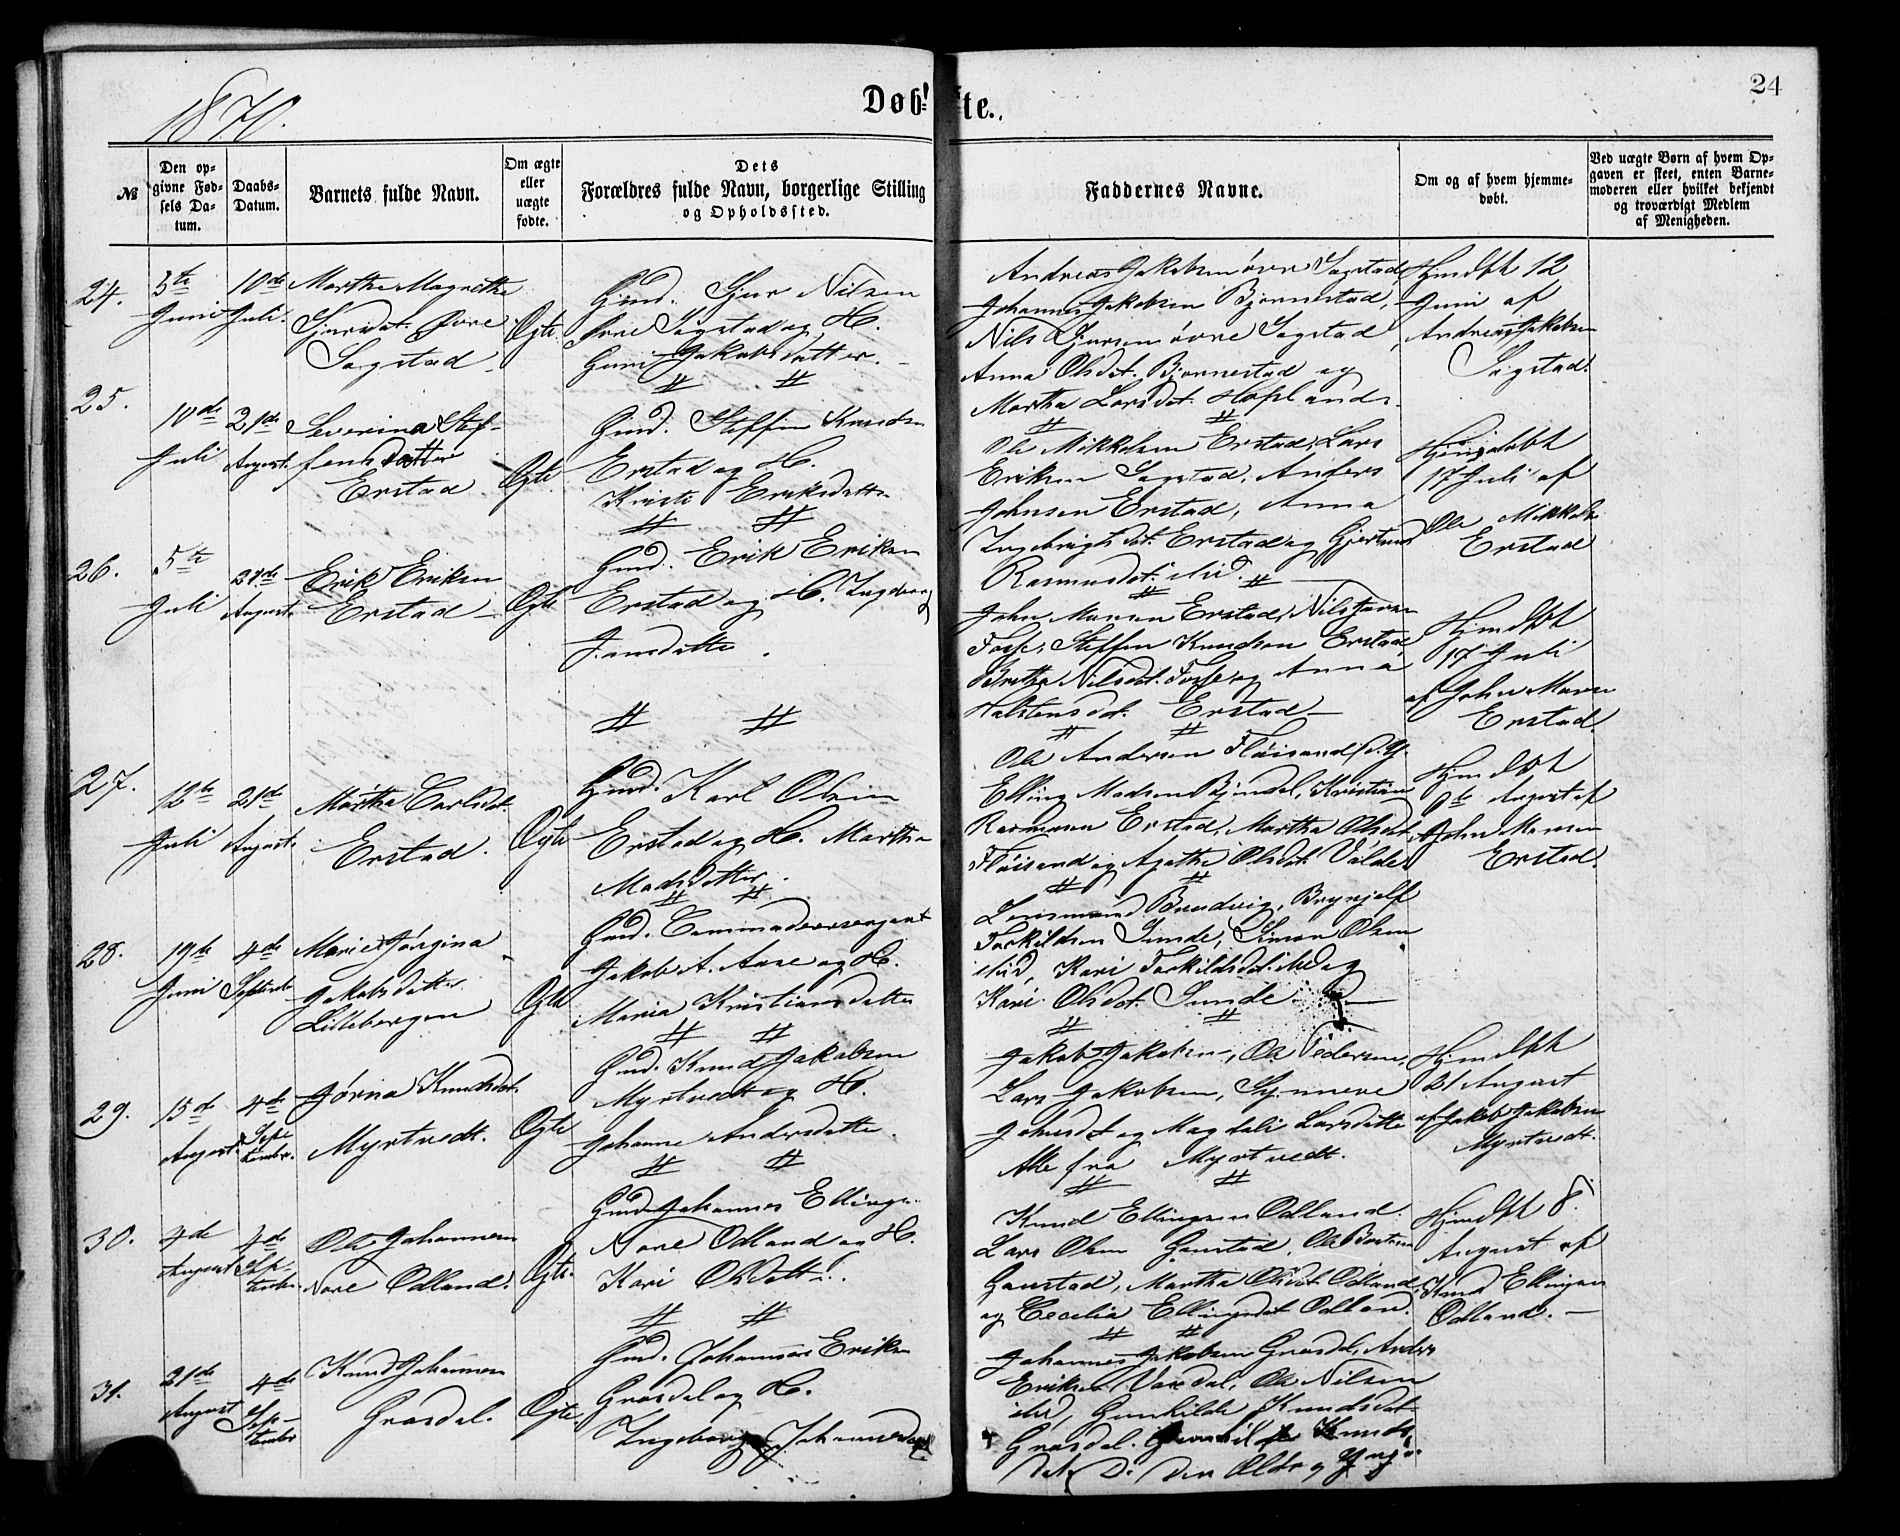 24
1870.
Døbte.
№
Den opgivne Fødsels Datum.
Daabs-Datum.
Barnets fulde Navn.
Om ægte eller uægte fødte.
Dets Forældres fulde Navn, borgerlige Stilling og Opholdssted.
Faddernes Navne.
Om og af hvem hjemmedøbt.
Ved uægte Børn af hvem Opgaven er skeet, enten Barnemoderen eller hvilket bekjendt og troværdigt Medlem af Menigheden.
24.
3te Juni
10de Juli.
Martha Magrethe
Sjursdat. øvre
Sagstad
Ægte
Gmd. Sjur Nilsen
øvre Sagstad og H.
Guni Jakobsdatter.
Andreas Jakobsen øvre Sagstad,
Johannes Jakobsen Bjørnestad,
Nils Sjursen øvre Sagstad,
Anna Olsdat. Bjørnestad og
Martha Larsdat. Hopland
Hjmdbt 12
Juni af
Andreas Jakobsen
Sagstad.
25.
10de Juli
21de August.
Severina Stef-
fensdatter
Erstad
Ægte
Gmd. Steffen Knudsen
Erstad og H.
Kristi Eriksdatter
Ole Mikkelsen Erstad, Lars
Eriksen Sagstad, Anders
Johnsen Erstad, Anna
Ingebrigtsdat. Erstad og Gjertrud
Rasmusdat. ibid.
Hjemdøbt
17 Juli af
Ole Mikkelsen
Erstad
26.
5te Juli
21de August
Erik Eriksen
Erstad
Ægte
Gmd. Erik Eriksen
Erstad og H. Ingeborg
Jansdatter.
John Monsen Erstad, Nils
Fosse, Steffen Knudsen Erstad
Brethe Nilsdat. Fosse og Anna
Halstensdat. Erstad
Hjmdbt
17 Juli
af John Monsen
Erstad.
27.
12te Juli
21de August
Martha Carlsdat.
Erstad.
Ægte
Gmd. Karl Olsen
Erstad og H. Martha
Madsdatter.
Ole Andersen Fløisand
Elling Madsen, Kristian
Rasmusen Erstad, Martha Olsdat.
Fløisand og Agathe Olsdat.
Hjmdbt
August af
John Monsen
Erstad.
28.
19de Juni
4de September
Marie Jørgina
Jakobsdatter
Lillebergen
Ægte
Gmd. Commandeersergent
Jakob A. Aase og H.
Maria Kristiansdatter
Brudvig, Brynjolf
Torkildsen Sunde, Simon Olsen
ibid, Kari Torkildsdat. ibid og
Kari Olsdat. Sunde
29.
15de August
4de September.
Jørina Knudsdat.
Myrtvedt.
Ægte
Gmd. Knud Jakobsen
Myrtvedt og H.
Johanne Andersdatter.
Jakob Jakobsen, Ole Pedersen,
Lars Jakobsen, Synneve
Johnsdat og Magdeli Larsdatter
Alle fra Myrtvedt.
Hjmdbt
21 August
af Jakob Jakobsen
Myrtvedt.
30.
4de August
4de September.
Ole Johannesen
Nore Odland.
Ægte
Gmd. Johannes Ellings.
Nore Odland og H.
Kari Olsdatter.
Knud Ellingsen Odland.
Lars Olsen Gaustad, Ole
Gaustad, Martha Olsdat. Odland
og Cecilia Ellingsdat Odland.
Hjmdbt 8.
August af
Knud Ellingsen
Odland.
31.
21de August
4de September
Knud Johannesen
Græsdal.
Ægte
Gmd. Johannes Eriksen
Græsdal og H.
Ingeborg Johannesdat
Johannes Jakobsen Græsdal, Anders
Eriksen Vaxdal, Ole Nilsen
ibid, Gunhilde Knudsdat
Græsdal. Gunhilde Knuds